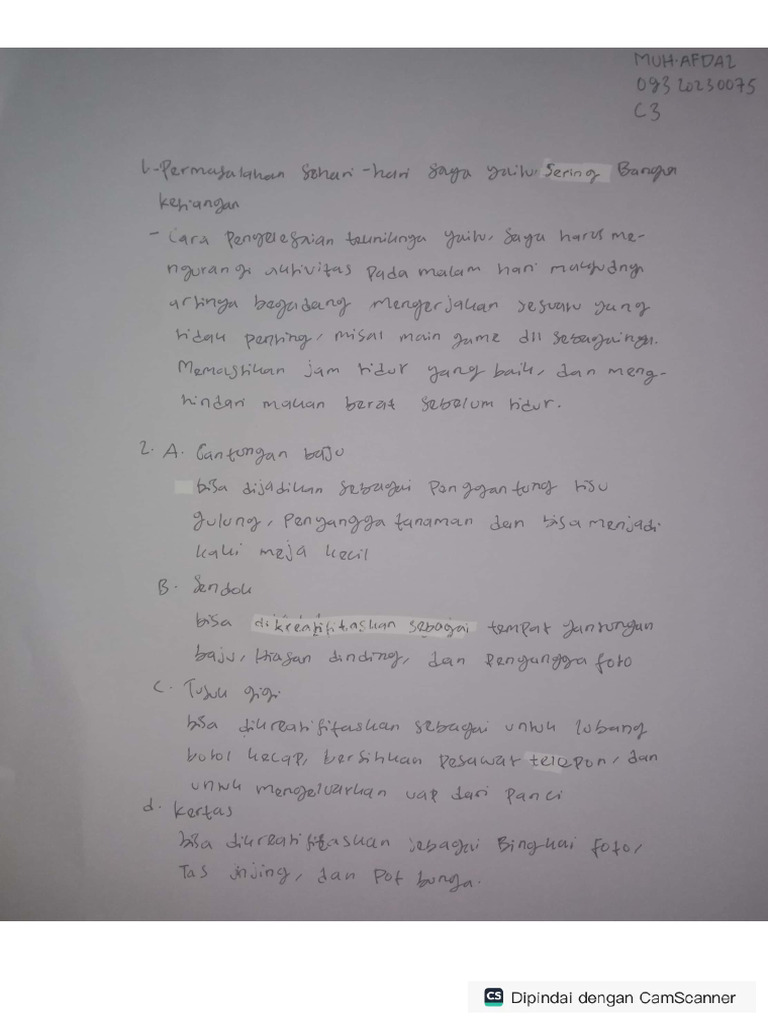 MUH. AFDAL
09320230075
C3
1. - Permasalahan sehari-hari saya yaitu, sering Bangun
kesiangan
- Cara Pengelesaian teuniknya yaitu, saya harus me-
ngurangi aktivitas Pada malam hari maksudnya
artinya begadang mengerjakan sesuatu yang
tidak penting, misal main game dll sebagainya.
Memastikan jam tidur yang baik, dan meng-
hindari makan berat sebelum tidur.
2. A. Gantungan baju
bisa dijadikan sebagai Penggantung tisu
gulung, Penyangga tanaman dan bisa menjadi
kaki meja kecil
B. Sendok
bisa dikreatifitaskan sebagai tempat gantungan
baju, Hiasan dinding, dan Penyangga foto
C. Tusuk gigi
bisa dikreatifitaskan sebagai untuk lubang
botol kecap, bersihkan Pesawat telepon, dan
untuk mengeluarkan uap dari Panci
d. kertas
bisa dikreatifitaskan sebagai Bingkai foto,
Tas jinjing, dan Pot bunga.
CS Dipindai dengan CamScanner